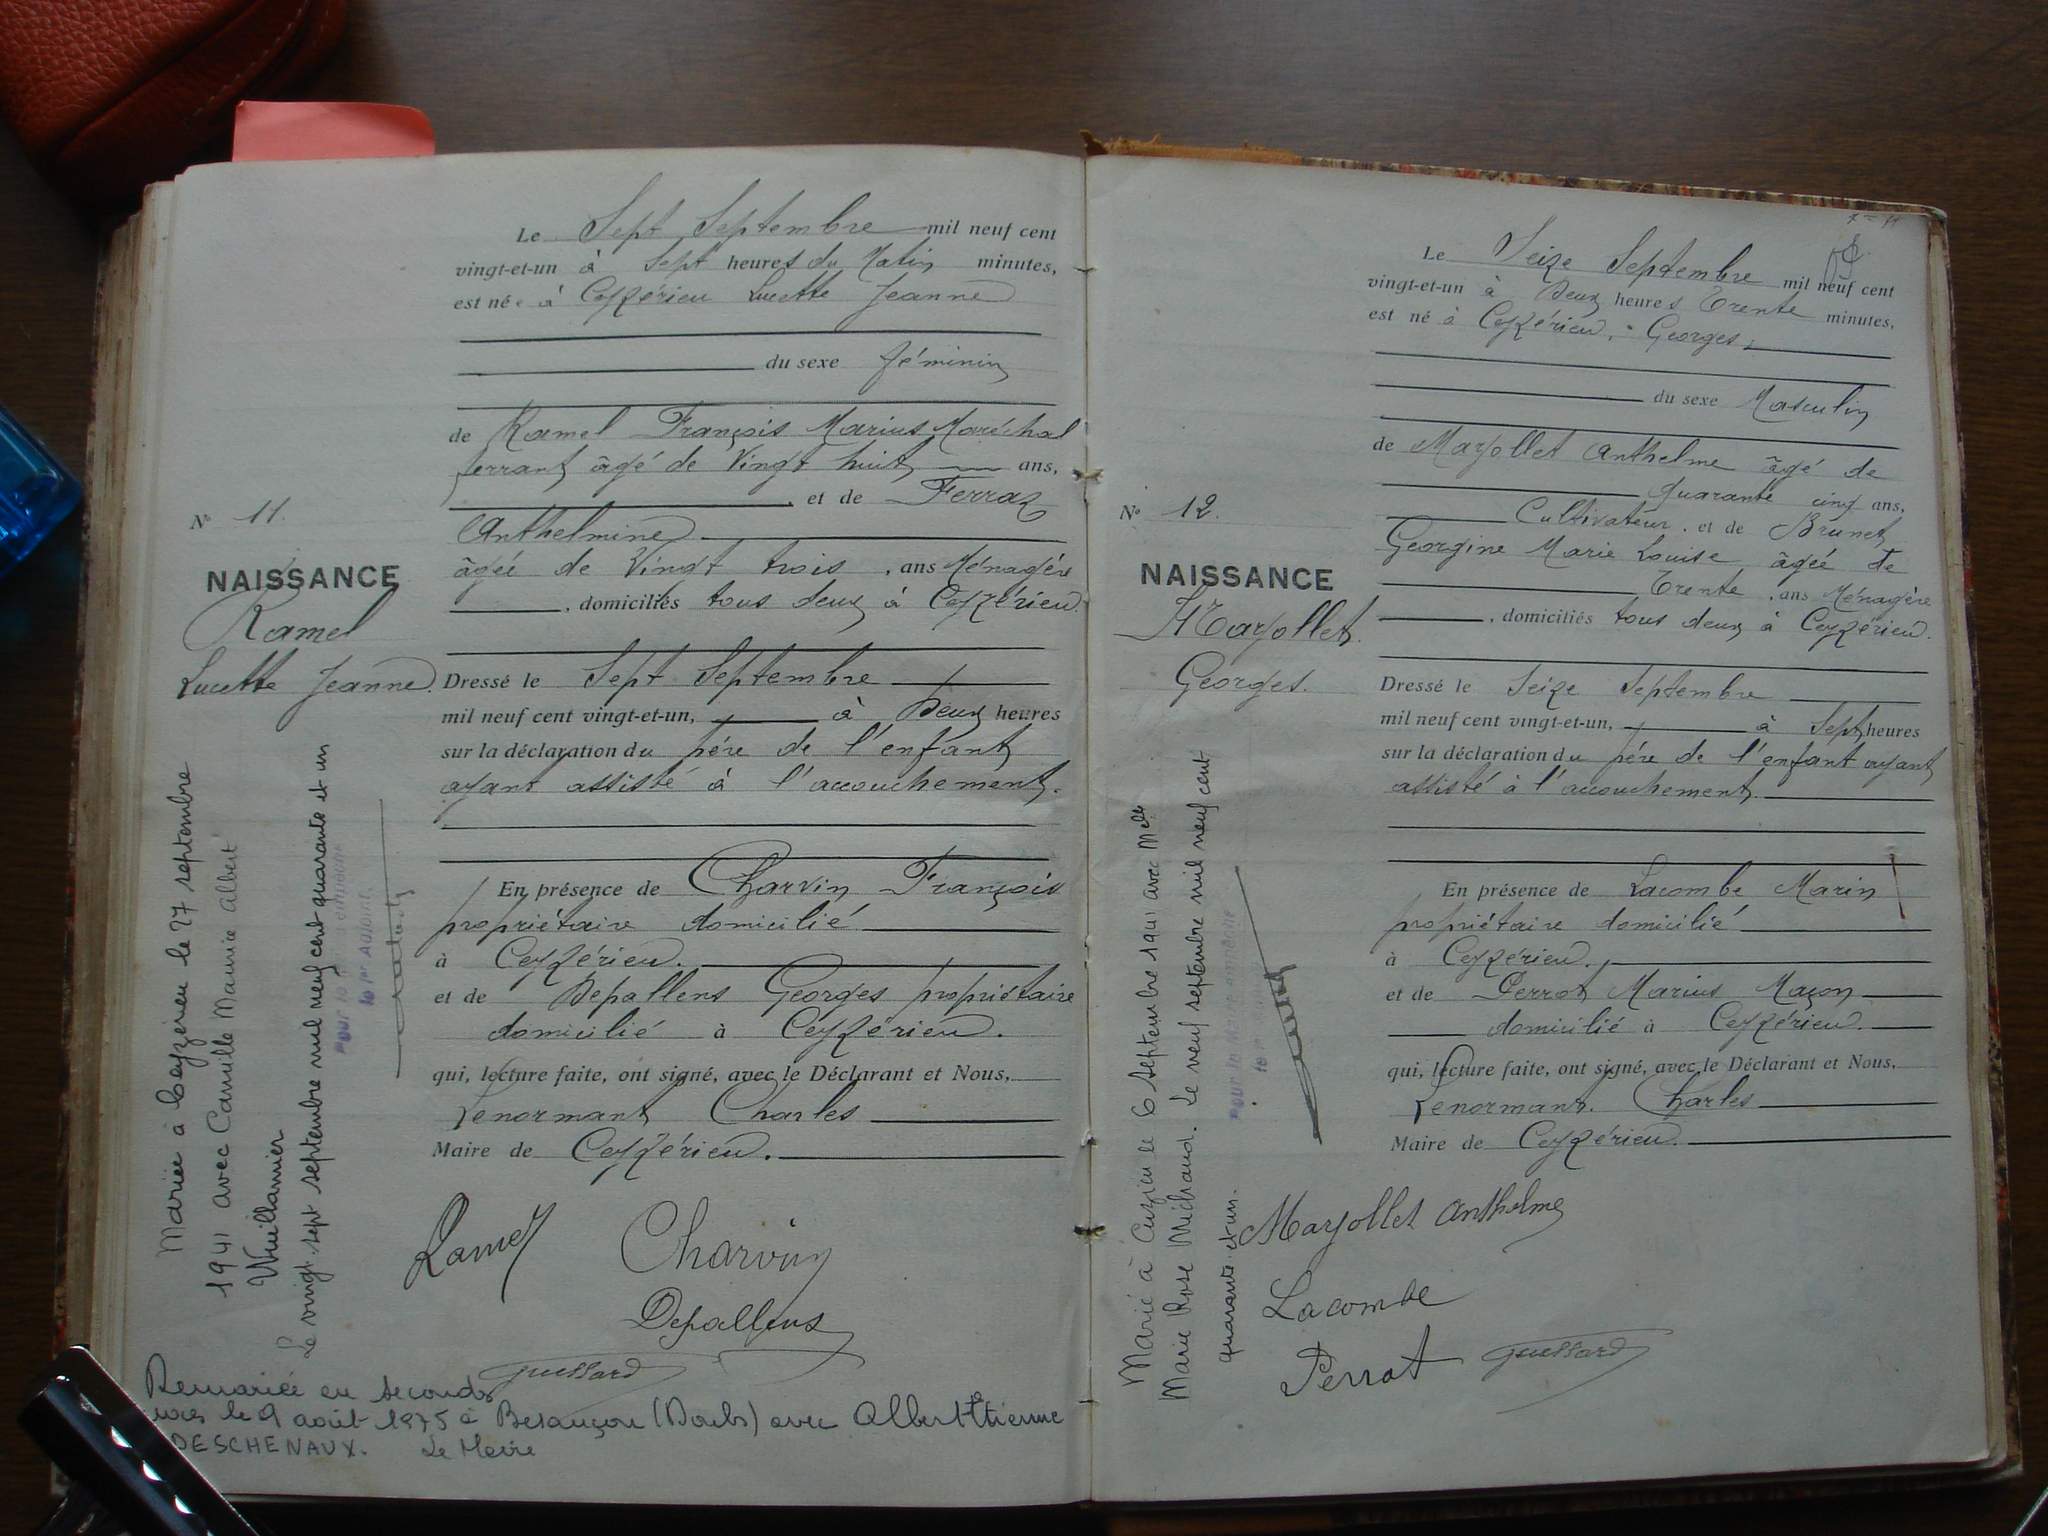 Le Sept Septembre mil neuf cent
vingt-et-un à Sept heures du Matin minutes,
est née à Ceyzérieu Lucette Jeanne
du sexe féminin
de Ramel François Marius Maréchal
ferrant âgé de Vingt huit ans,
et de Ferraz
Anthelmine
âgée de Vingt trois, ans Ménagère
, domiciliés tous deux à Ceyzérieu.
Dressé le Sept Septembre
mil neuf cent vingt-et-un, à Deux heures
sur la déclaration du père de l'enfant
ayant assisté à l'accouchement.
En présence de Charvin François
propriétaire domicilié
à Ceyzérieu.
et de Depallens Georges propriétaire
domicilié à Ceyzérieu.
qui, lecture faite, ont signé, avec le Déclarant et Nous,
Lenormant Charles
Maire de Ceyzérieu.
Ramel Charvin
Depallens
N° 11.
NAISSANCE
Ramel
Lucette Jeanne.
Mariée à Ceyzérieu le 27 septembre
1941 avec Camille Maurice Albert
Vuillamier
Le vingt sept septembre mil neuf cent quarante et un
Pour le Maire empêché
le 1er Adjoint,
Remariée en secondes
noces le 9 août 1975 à Besançon (Doubs) avec Albert Etienne
DESCHENAUX. Le Maire
Le Seize Septembre mil neuf cent
vingt-et-un à Deux heures Trente minutes,
est né à Ceyzérieu, Georges,
du sexe Masculin
de Mayollet Anthelme âgé de
quarante cinq ans,
Cultivateur, et de Brunet
Georgine Marie Louise âgée de
Trente, ans Ménagère
, domiciliés tous deux à Ceyzérieu.
Dressé le Seize Septembre
mil neuf cent vingt-et-un, à Sept heures
sur la déclaration du père de l'enfant ayant
assisté à l'accouchement
En présence de Lacombe Marin
propriétaire domicilié
à Ceyzérieu.
et de Perrot Marius Maçon
domicilié à Ceyzérieu.
qui, lecture faite, ont signé, avec le Déclarant et Nous,
Lenormant. Charles
Maire de Ceyzérieu.
Mayollet Anthelme
Lacombe
Perrot
N° 12.
NAISSANCE
Mayollet.
Georges.
Marié à Cuzieu le 6 septembre 1941 avec Melle
Marie Rose Michaud. Le neuf septembre mil neuf cent
quarante et un.
Pour le Maire empêché